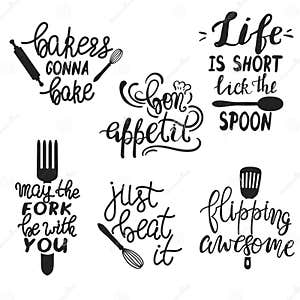 bakers
GONNA
bake
bon
appetit
Life
IS SHORT
lick the
SPOON
may the
FORK
be with
YOU
just
beat
it
flipping
awesome